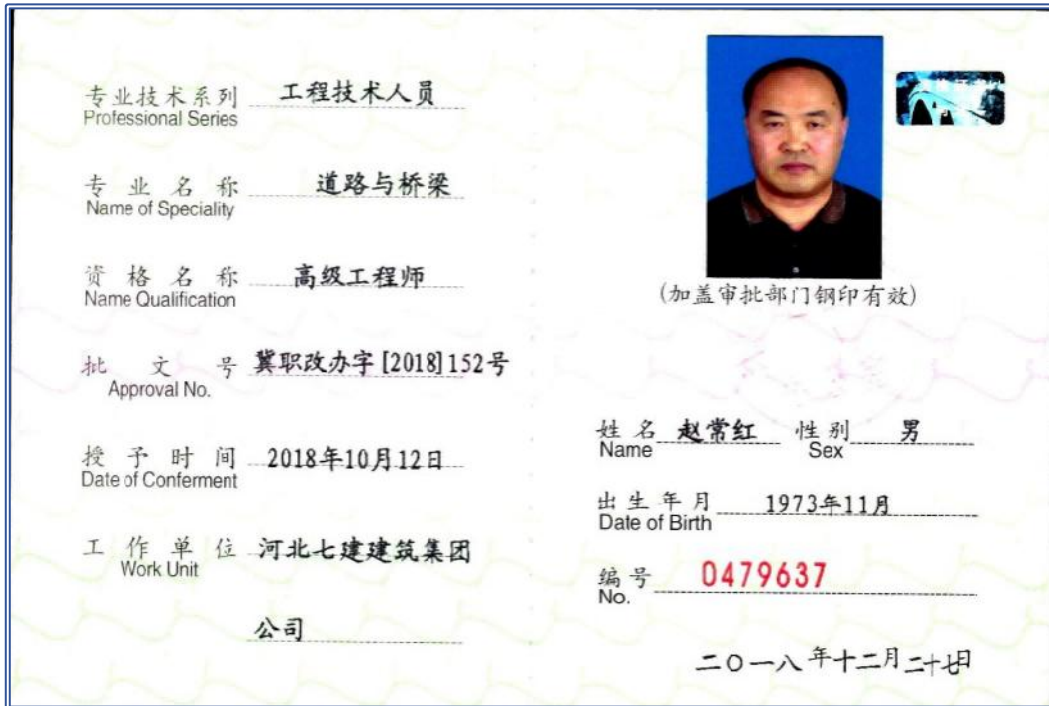 专业技术系列 工程技术人员
Professional Series
专业名称 道路与桥梁
Name of Speciality
资格名称 高级工程师
Name Qualification
批文号 冀职改办字[2018]152号
Approval No.
授予时间 2018年10月12日
Date of Conferment
工作单位 河北七建建筑集团
Work Unit
公司
(加盖审批部门钢印有效)
姓名 赵常红 性别 男
Name Sex
出生年月 1973年11月
Date of Birth
编号 0479637
No.
二〇一八年十二月二十七日